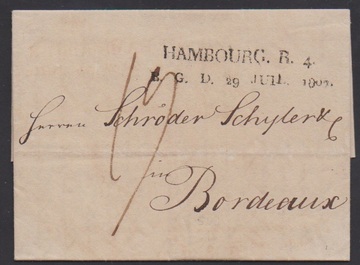 HAMBOURG. R. 4.
B. G. D. 29 JUIL.
Herren Schröder Schyler &
in
Bordeaux